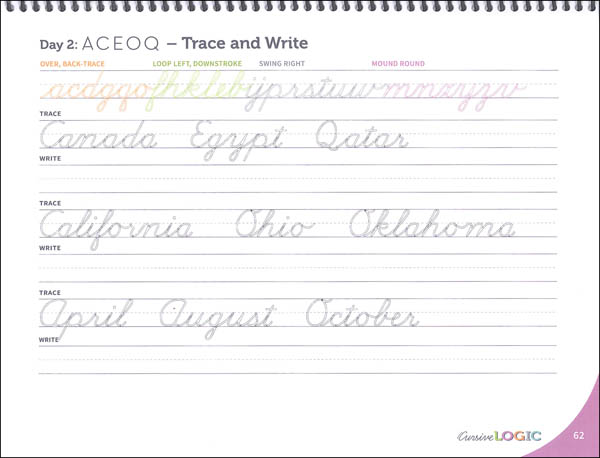 Day 2: A C E O Q – Trace and Write
OVER, BACK-TRACE LOOP LEFT, DOWNSTROKE SWING RIGHT MOUND ROUND
acdgqofhklebijprstuwmnxyzv
TRACE
Canada Egypt Qatar
WRITE
TRACE
California Ohio Oklahoma
WRITE
TRACE
April August October
WRITE
CursiveLOGIC 62